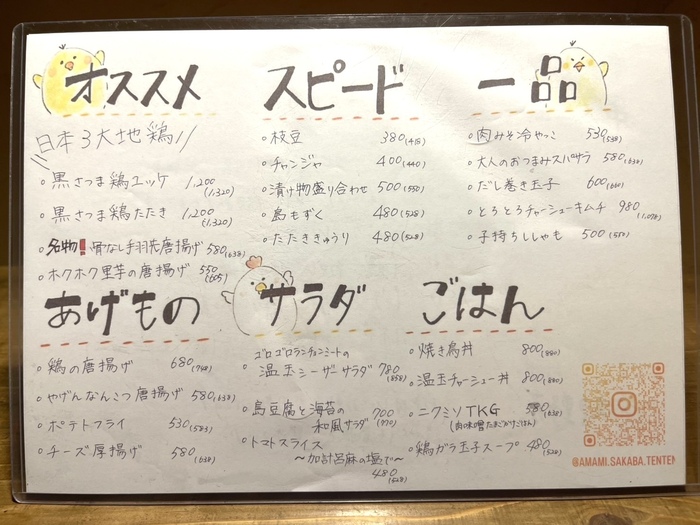 オススメ
日本3大地鶏
・黒さつま鶏ユッケ 1,200(1,320)
・黒さつま鶏たたき 1,200(1,320)
・名物!骨なし手羽先唐揚げ 580(638)
・ホクホク里芋の唐揚げ 550(605)
スピード
・枝豆 380(418)
・チャンジャ 400(440)
・漬け物盛り合わせ 500(550)
・島もずく 480(528)
・たたききゅうり 480(528)
一品
・肉みそ冷やっこ 530(538)
・大人のおつまみスパサラ 580(638)
・だし巻き玉子 600(660)
・とろとろチャーシューキムチ 980(1,078)
・子持ちししゃも 500(550)
あげもの
・鶏の唐揚げ 680(748)
・やげんなんこつ唐揚げ 580(638)
・ポテトフライ 530(583)
・チーズ厚揚げ 580(638)
サラダ
・ゴロゴロランチョンミートの
温玉シーザーサラダ 780(858)
・島豆腐と海苔の
和風サラダ 700(770)
・トマトスライス
〜加計呂麻の塩で〜
480(528)
ごはん
・焼き鳥丼 800(880)
・温玉チャーシュー丼 800(880)
・ニクミソTKG 580(638)
(肉味噌たまごかけごはん)
・鶏ガラ玉子スープ 480(528)
@AMAMI.SAKABA.TENTEN